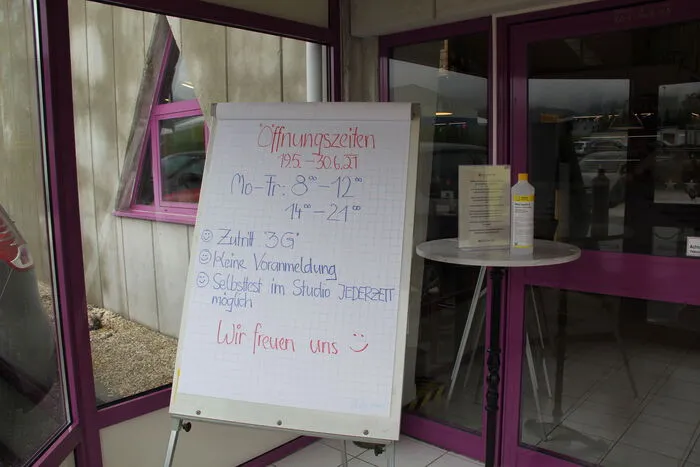 Öffnungszeiten
19.5. – 30.6.21
Mo-Fr: 8⁰⁰ – 12⁰⁰
14⁰⁰ – 21⁰⁰
Zutritt "3G"
Keine Voranmeldung
Selbsttest im Studio JEDERZEIT
möglich
Wir freuen uns